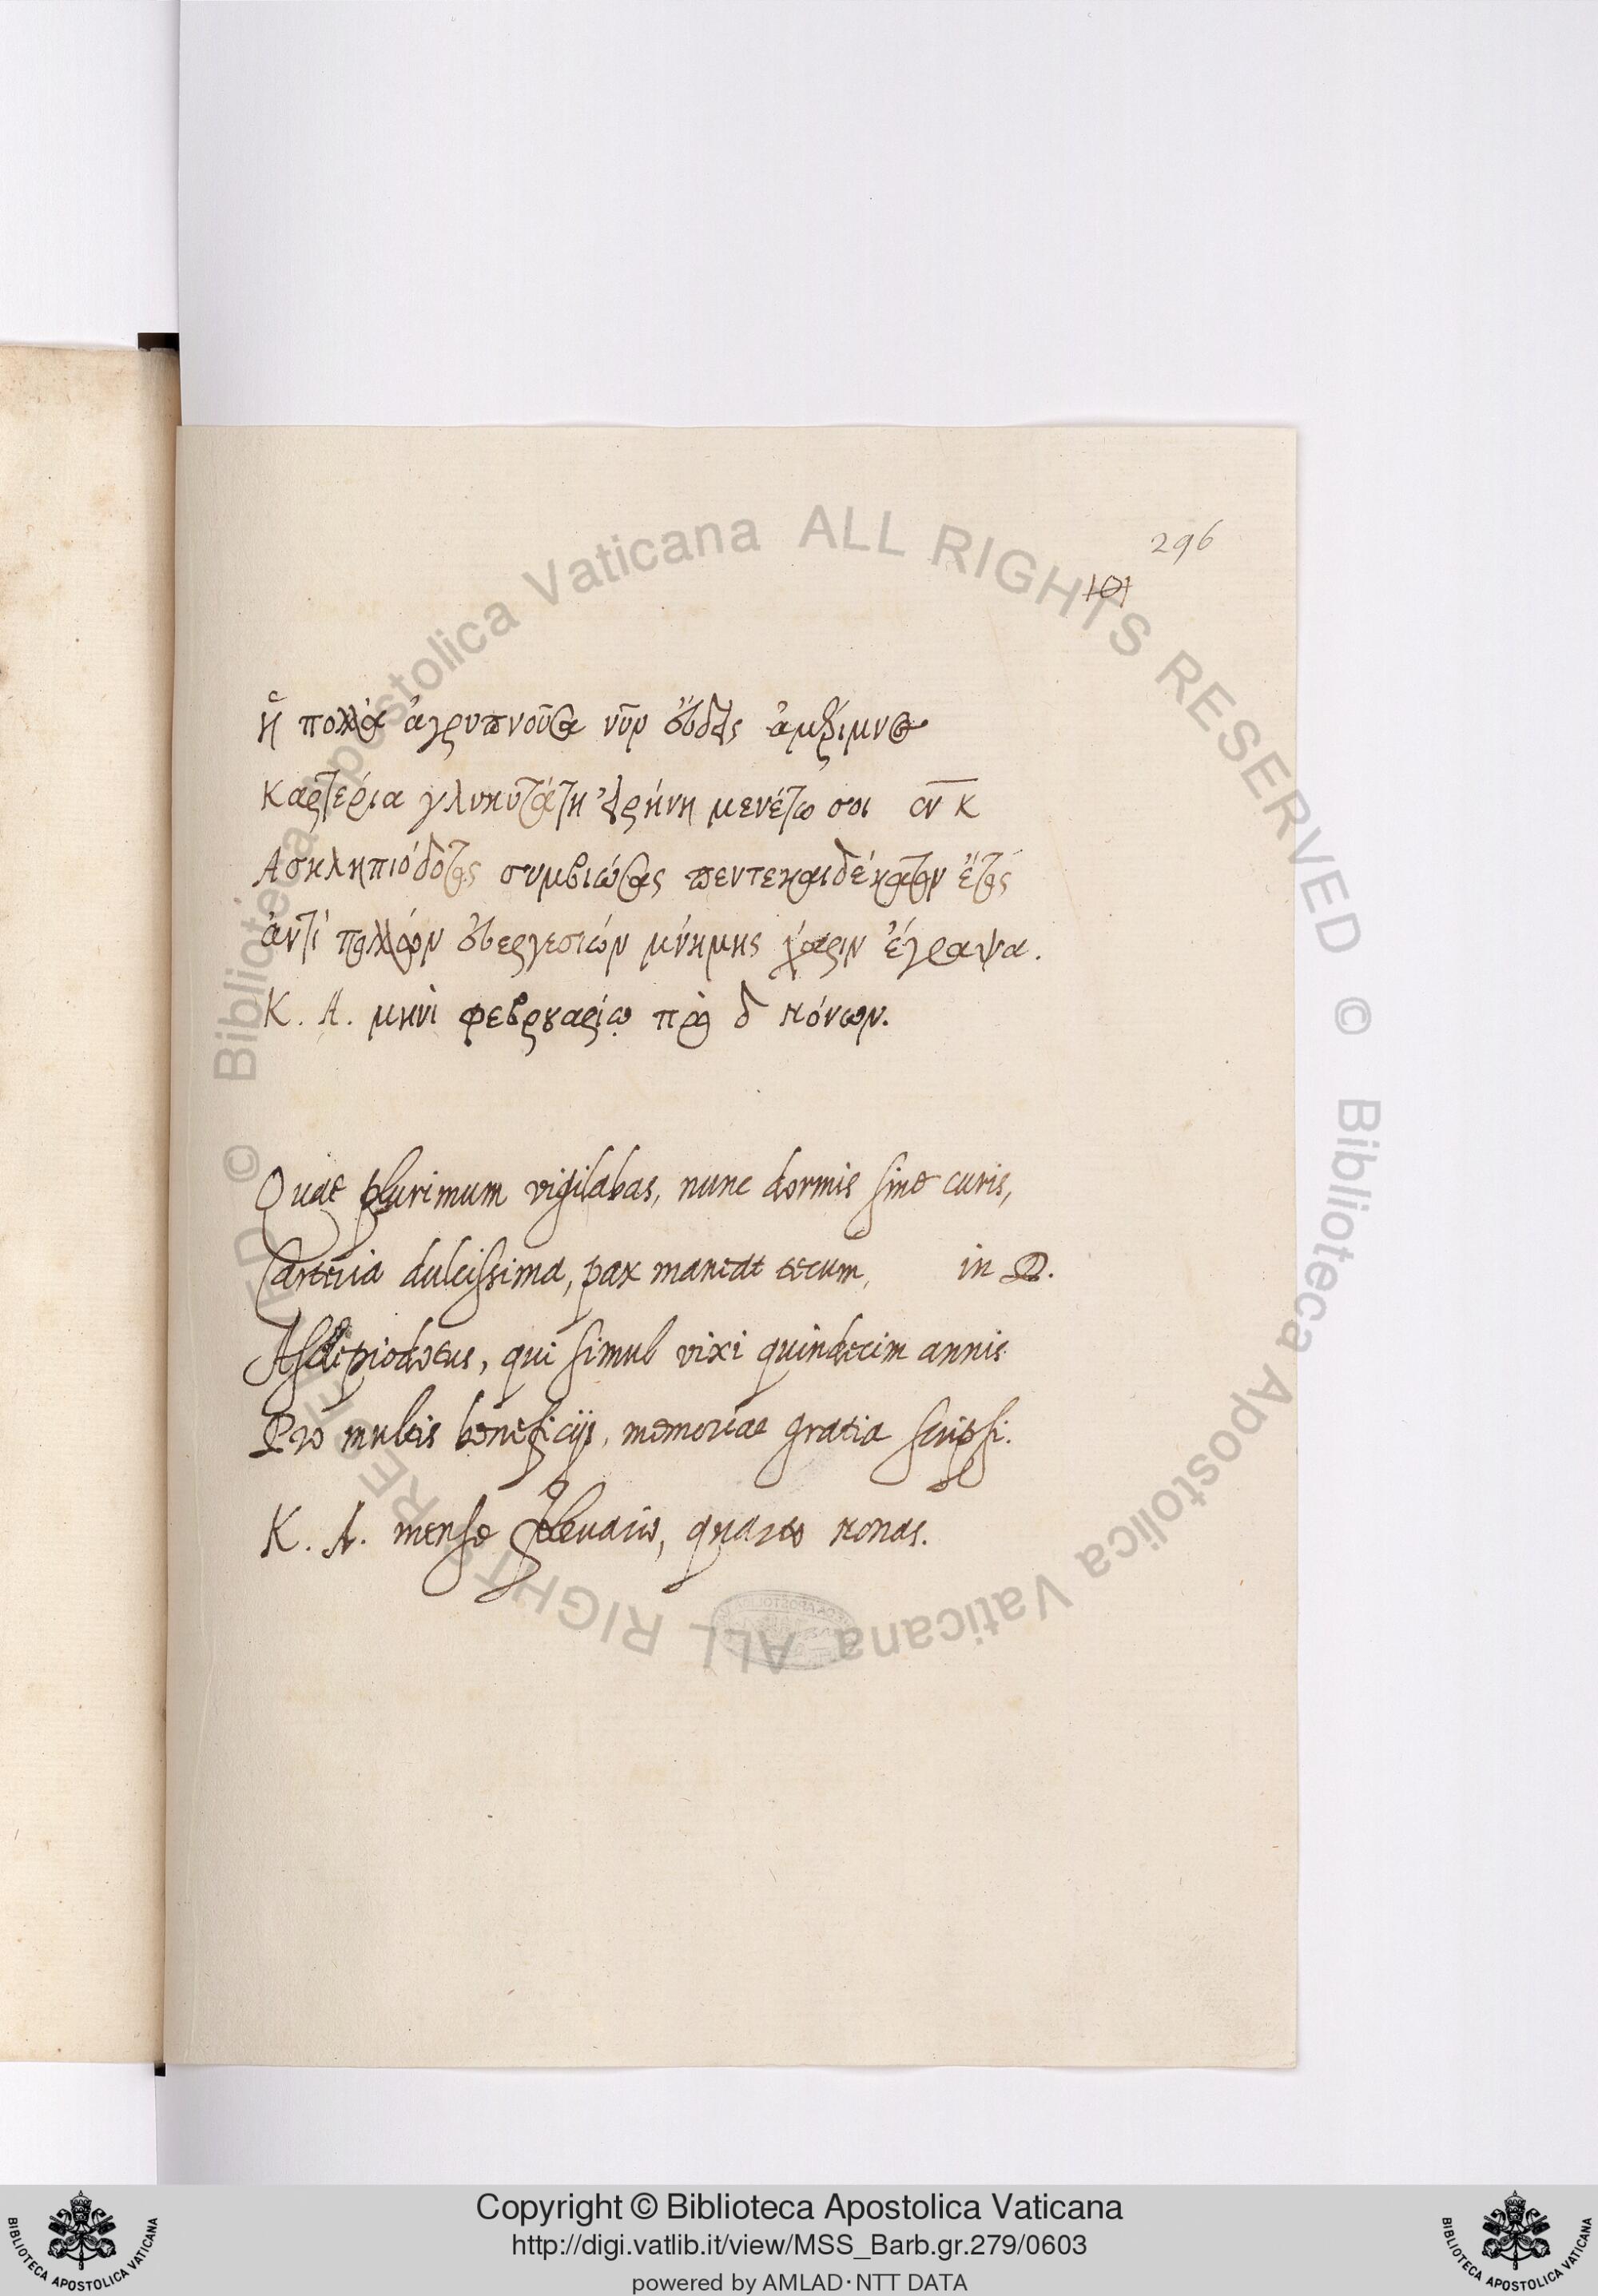 296
101
ἡ πολλὰ ἀγρυπνοῦσα νῦν εὕδεις ἀμέριμνα
καρτερία γλυκυτάτη εἰρήνη μενέτω σοι ἐν κ̅
Ἀσκληπιόδοτος συμβιώσας πεντεκαιδέκατον ἔτος
ἀντὶ πολλῶν εὐεργεσιῶν μνήμης χάριν ἔγραψα.
Κ. Α. μηνὶ φεβρουαρίῳ πρὸ δ νόνων.
Quae plurimum vigilabas, nunc dormis sine curis,
Carteria dulcissima, pax maneat tecum, in D.
Asclepiodotus, qui simul vixi quindecim annis
Pro multis beneficijs, memoriae gratia scripsi.
K. A. mense februario, quarto nonas.
Copyright © Biblioteca Apostolica Vaticana
http://digi.vatlib.it/view/MSS_Barb.gr.279/0603
powered by AMLAD·NTT DATA
BIBLIOTECA APOSTOLICA VATICANA
BIBLIOTECA APOSTOLICA VATICANA
© Biblioteca Apostolica Vaticana ALL RIGHTS RESERVED
© Biblioteca Apostolica Vaticana ALL RIGHTS RESERVED